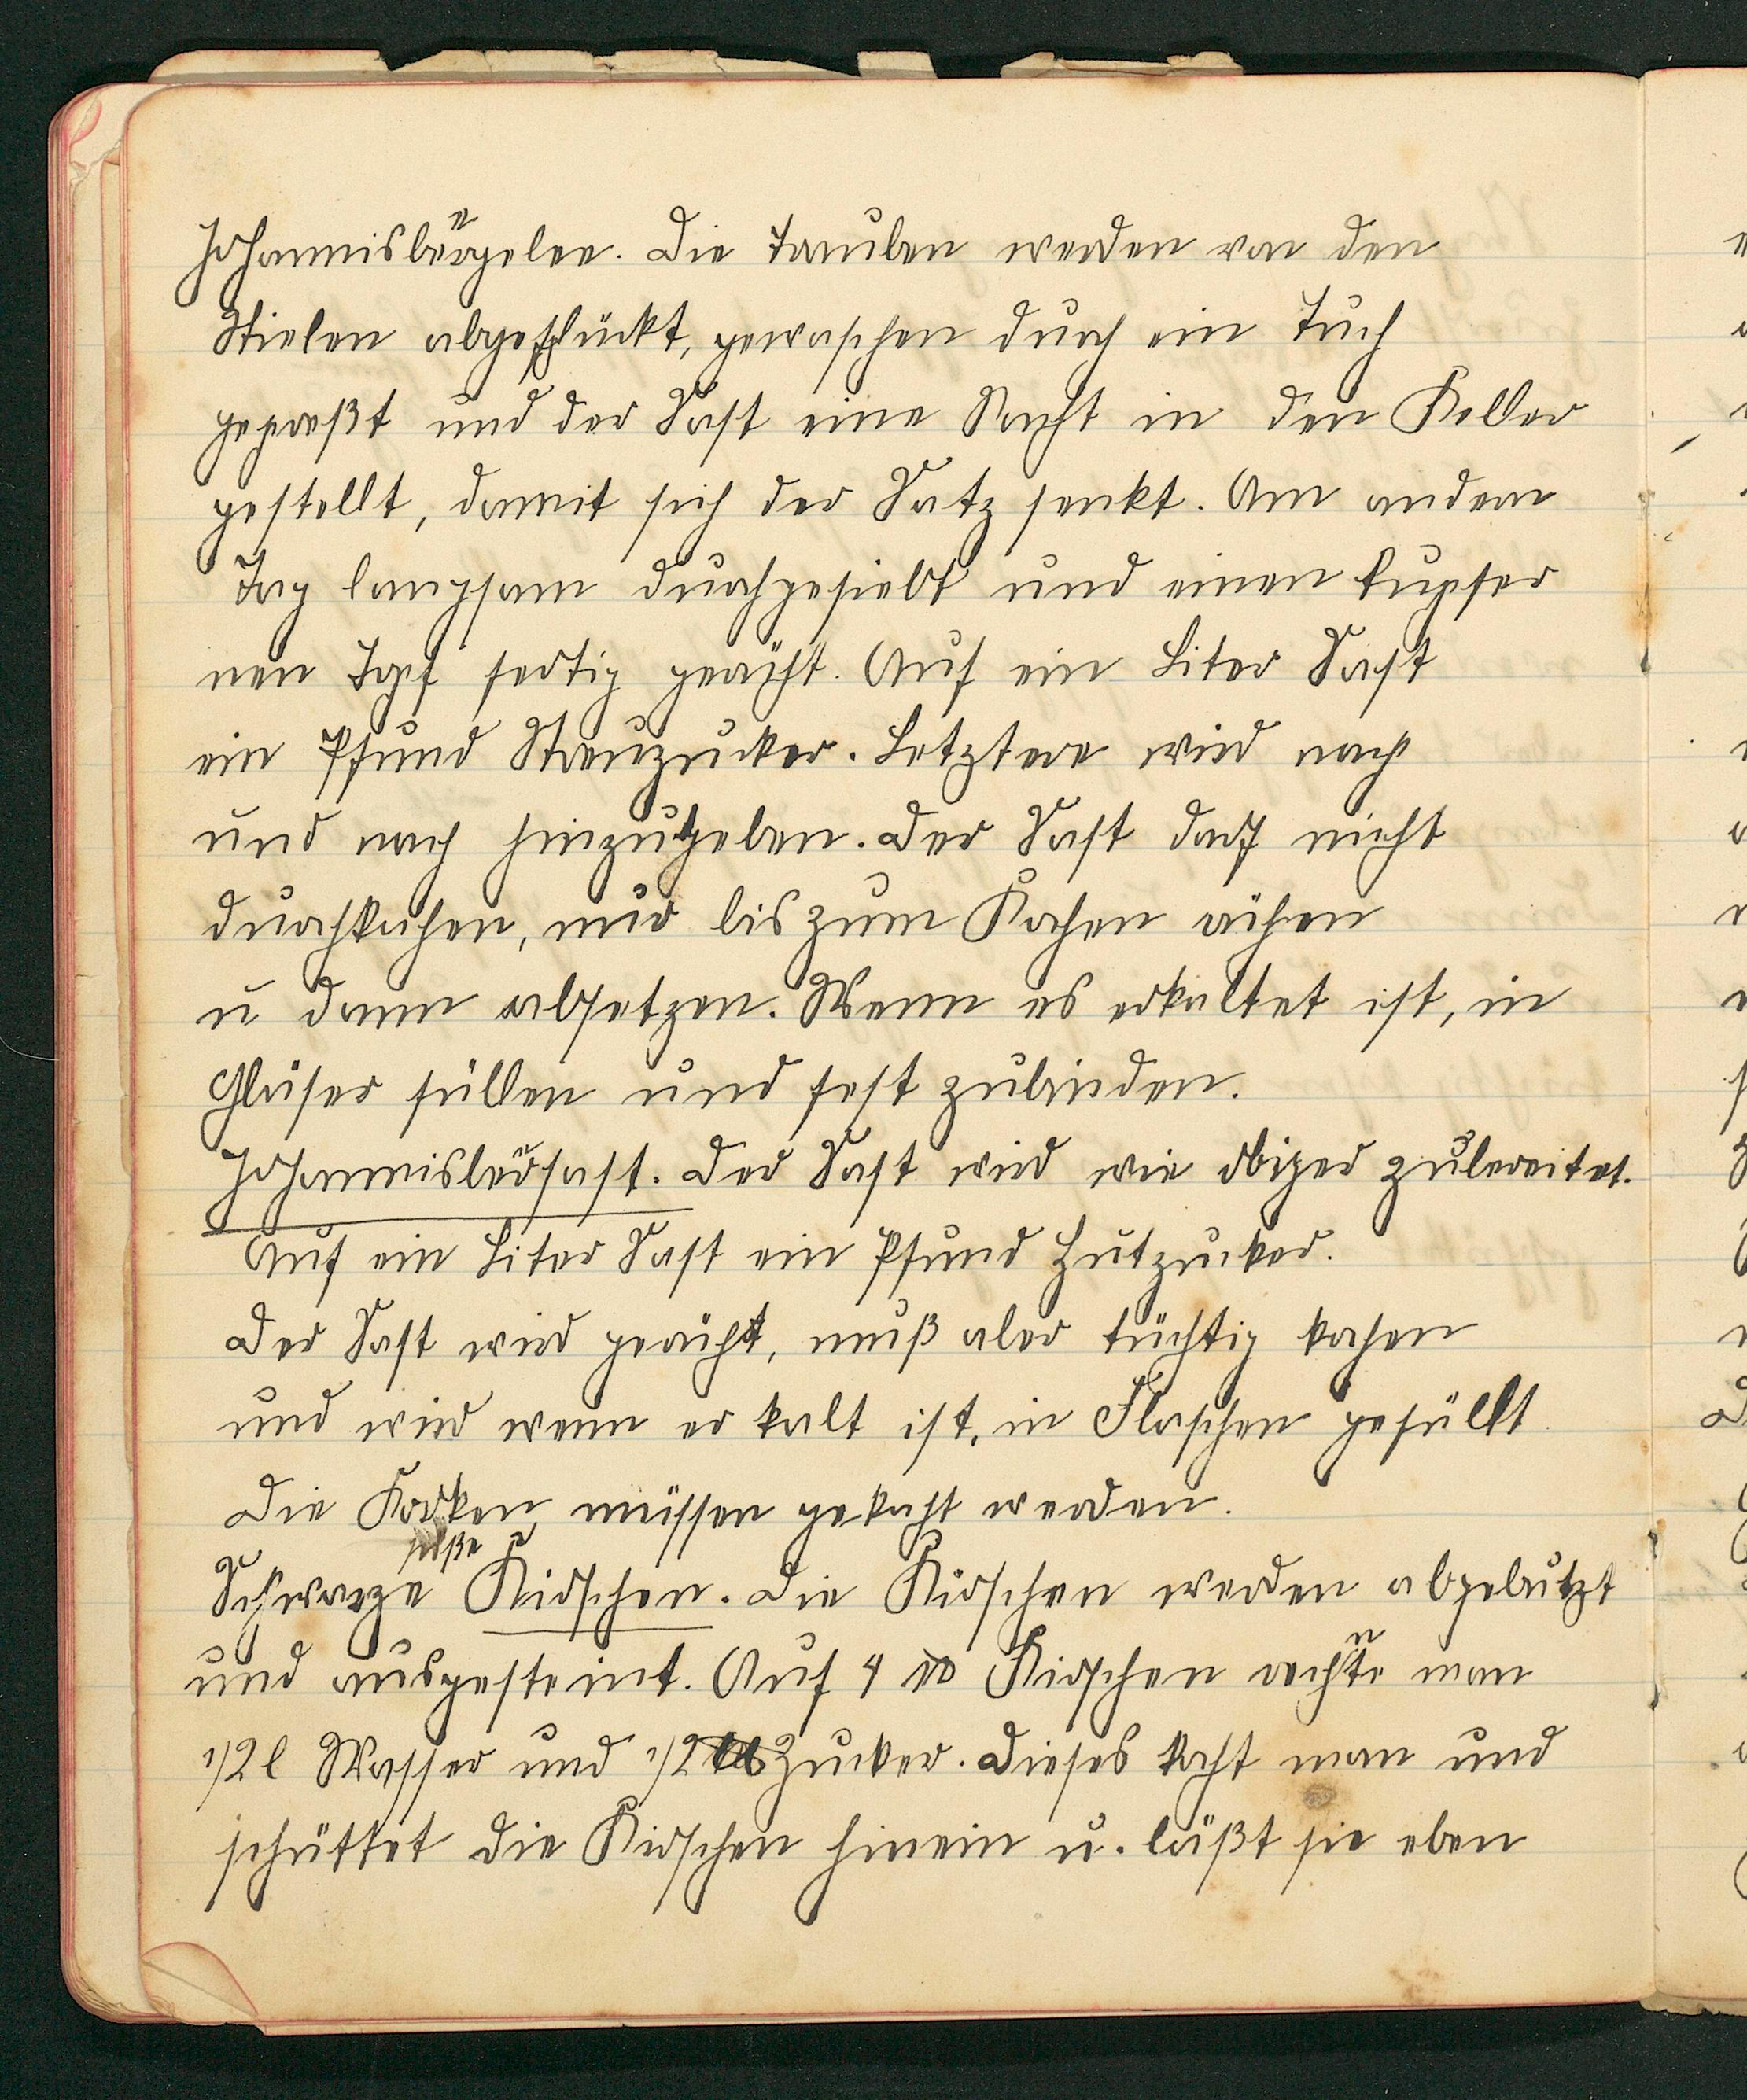 Johannisbeergelee. Die Trauben werden von den
Stielen abgepflückt, gewaschen durch ein Tuch
gepreßt und der Saft eine Nacht in den Keller
gestellt, damit sich der Satz senkt. Am andern
Tag langsam durchgesiebt und einen kupfer
nen Topf fertig gerührt. Auf ein Liter Saft
ein Pfund Streuzucker. Letztere wird nach
und nach hinzugeben. Der Saft darf nicht
durchkochen, nur bis zum Kochen rühren
u dann absetzen. Wenn es erkaltet ist, in
Gläser füllen und fest zubinden.
Johannisbeersaft. Der Saft wird wie obiger zubereitet.
Auf ein Liter Saft ein Pfund Hutzucker.
Der Saft wird gerührt, muß aber tüchtig kochen
und wird wenn er kalt ist, in Flaschen gefüllt
Die Korken müssen gekocht werden.
Schwarze süße Kirschen. Die Kirschen werden abgebutzt
und ausgesteint. Auf 4 ℔ Kirschen rechnete man
1/2 l Wasser und 1/2 ℔ Zucker. Dieses kocht man und
schüttet die Kirschen hinein u. läßt sie eben